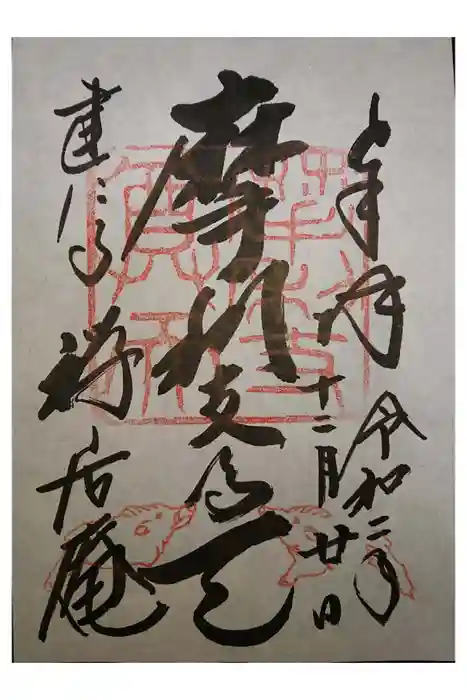 奉拝
令和二年
十二月廿日
摩利支尊天
建仁寺
禅居庵